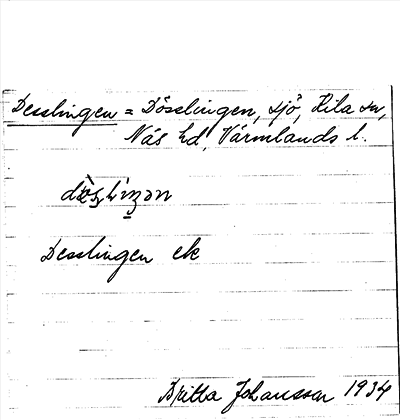 Desslingen = Dösslingen, sjö, Kila sn,
Näs hd, Värmlands l.
Desslingen ek
Britta Johansson 1934